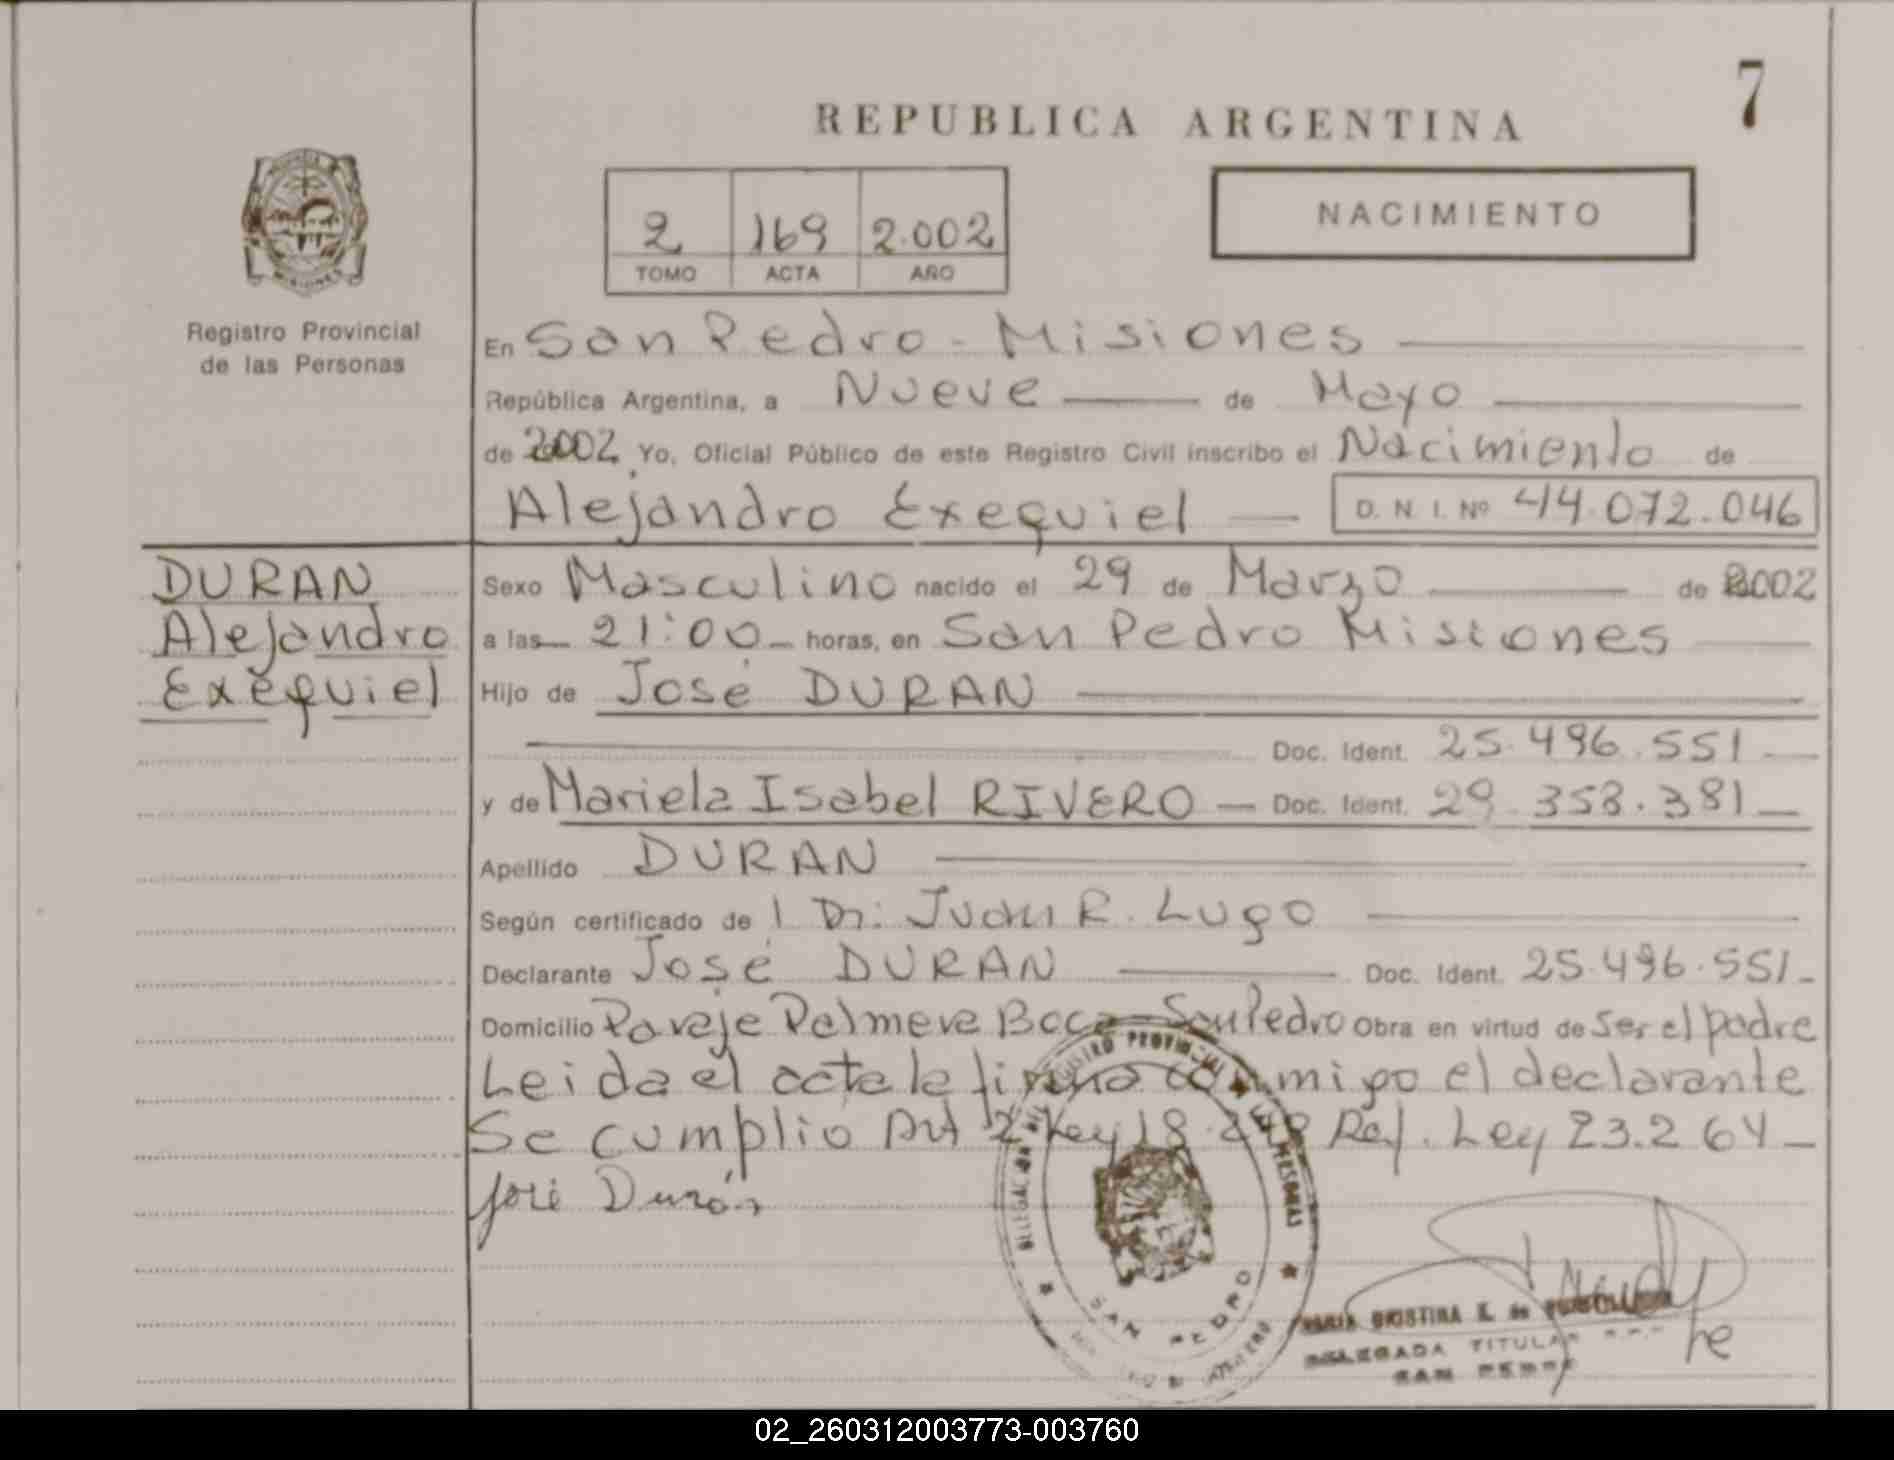 7
REPUBLICA ARGENTINA
NACIMIENTO
2 169 2.002
TOMO ACTA AÑO
MISIONES
Registro Provincial
de las Personas
En San Pedro - Misiones
República Argentina, a Nueve de Mayo
de 2002 Yo, Oficial Público de este Registro Civil inscribo el Nacimiento de
Alejandro Exequiel — D. N. I. Nº 44.072.046
DURAN
Alejandro
Exequiel
Sexo Masculino nacido el 29 de Marzo de 2002
a las 21:00 horas, en San Pedro Misiones
Hijo de José DURAN
Doc. Ident. 25.496.551
y de Mariela Isabel RIVERO — Doc. Ident. 29.358.381
Apellido DURAN
Según certificado de l Dr: Juan R. Lugo
Declarante José DURAN Doc. Ident. 25.496.551
Domicilio Paraje Palmera Boca - San Pedro Obra en virtud de ser el padre
Leida el acta la firma conmigo el declarante
Se cumplio Art 2 Ley 18.248 Ref. Ley 23.264
José Durán
REGISTRO PROVINCIAL DE LAS PERSONAS
DELEGACION DEL
SAN PEDRO
MARIA CRISTINA E. de
DELEGADA TITULAR
SAN PEDRO
02_260312003773-003760